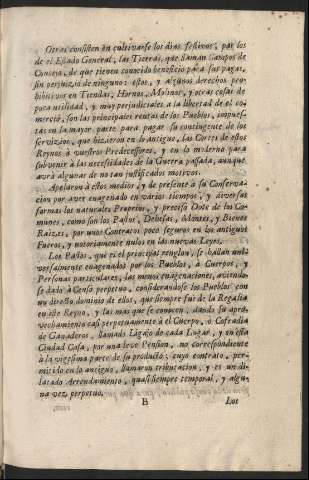 Otras consisten en cultivarse los dias festivos, por los
de el Estado General, las Tierras, que llaman Campos de
Concejo, de que tienen conocido beneficio para sus pagas,
sin perjuizio de ninguno: estos, y algunos derechos pro-
hibitivos en Tiendas, Hornos, Molinos, y otras cosas de
poca utilidad, y muy perjudiciales a la libertad de el co-
mercio, son las principales rentas de los Pueblos, impues-
tas en la mayor parte para pagar su contingente de los
servicios, que hizieron en lo antiguo, las Cortes de estos
Reynos à vuestros Predecessores, y en lo moderno para
subvenir à las necesidades de la Guerra passada, aunque
avrà algunas de no tan justificados motivos.
Apelaron à estos medios, y de presente à su Conserva-
cion por aver enagenado en varios tiempos, y diversas
formas los naturales Proprios, y preciosa Dote de los Co-
munes, como son los Pastos, Dehesas, Montes, y Bienes
Raizes, por unos Contratos poco seguros en los antiguos
Fueros, y notoriamente nulos en las nuevas Leyes.
Los Pastos, que es el principal renglon, se hallan uni-
versalmente enagenados por los Pueblos, à Cuerpos, y
Personas particulares, las menos enagenaciones, aviendo-
se dado à Censo perpetuo, considerandose los Pueblos con
un directo dominio de ellos, que siempre fuè de la Regalia
en este Reyno, y las mas que se conocen, dando su apro-
vechamiento casi perpetuamente à el Cuerpo, ò Cofradia
de Ganaderos, llamada Ligajo de cada Lugar, y en esta
Ciudad Casa, por una leve Pension, no correspondiente
à la vigessima parte de su producto; cuyo contrato, per-
mitido en lo antiguo, llamaron tributacion, y es un di-
latado Arrendamiento, quasi siempre temporal, y algu-
na vez perpetuo.
B Los